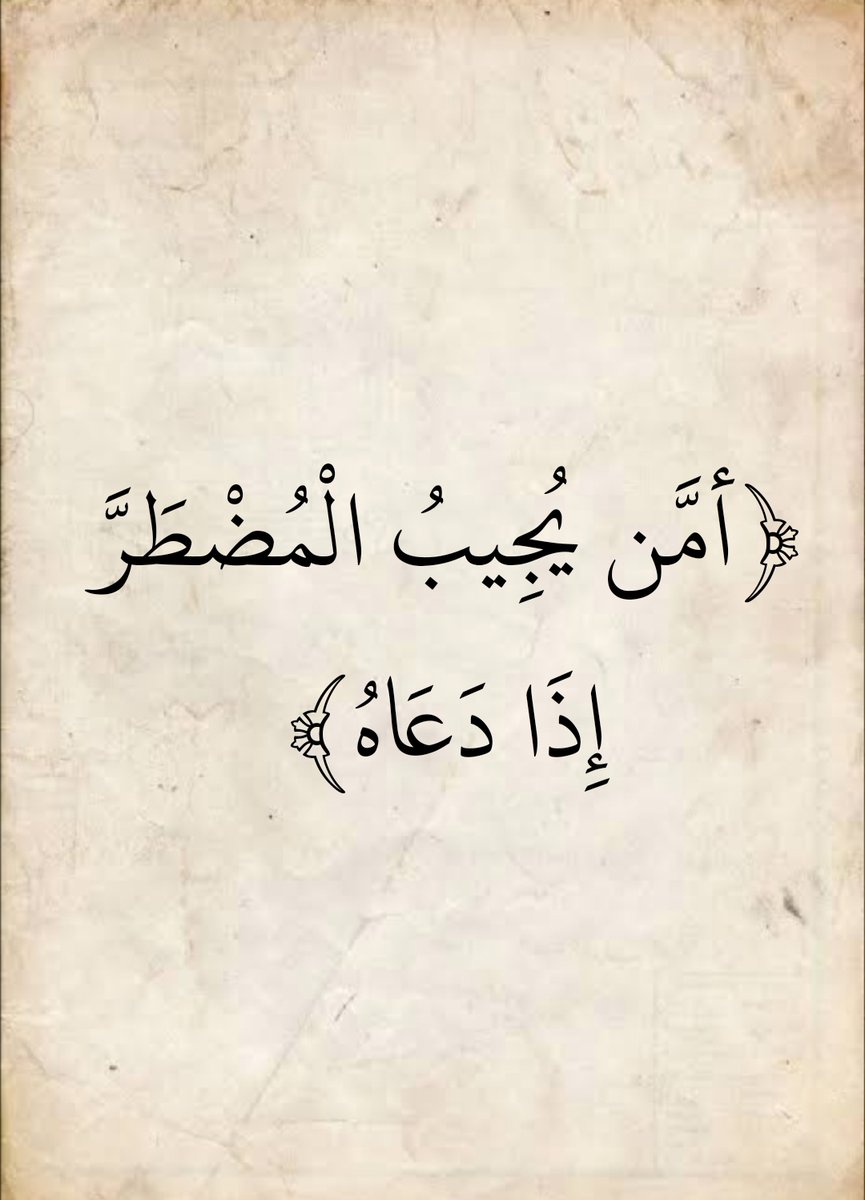 ﴿أمَّن يُجِيبُ الْمُضْطَرَّ
إِذَا دَعَاهُ﴾